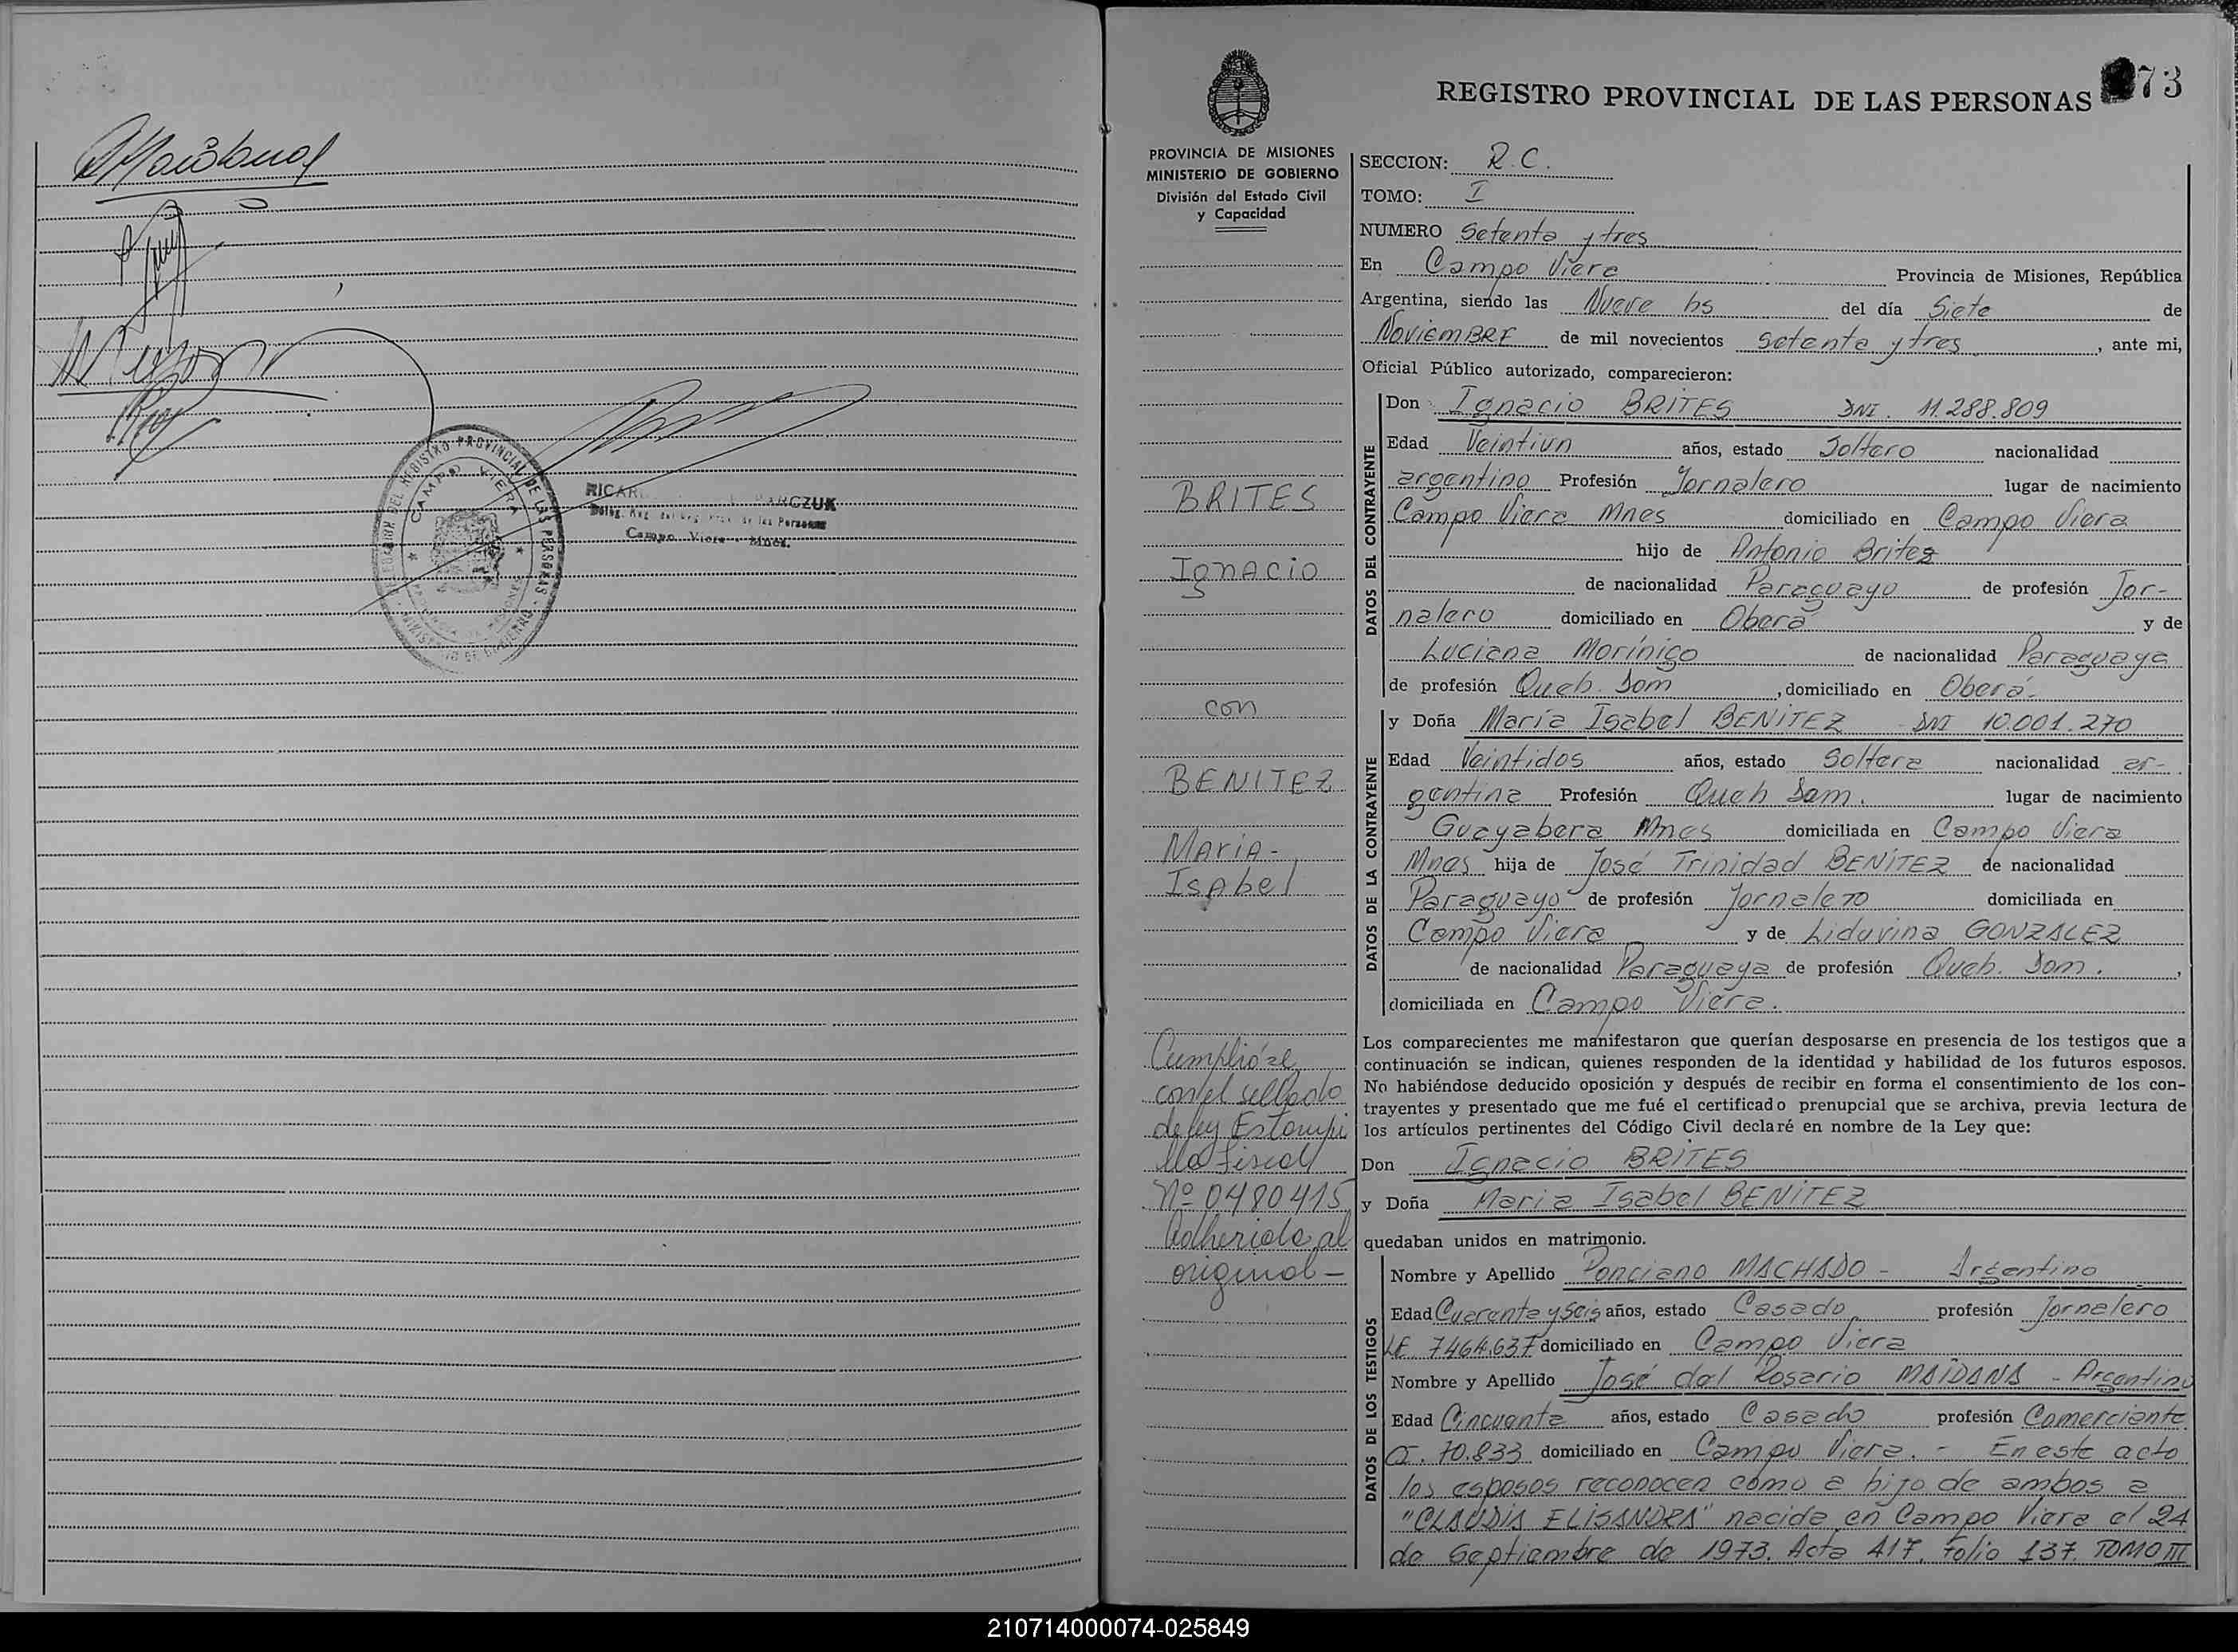 Maidana
CAMPO VIERA
RICAR
Campo Viera - Mnes.
73
REGISTRO PROVINCIAL DE LAS PERSONAS
PROVINCIA DE MISIONES
MINISTERIO DE GOBIERNO
División del Estado Civil
y Capacidad
BRITES
Ignacio
con
BENITEZ
Maria-
Isabel
Cumplióse
con el sellado
de ley Estampi
lla fiscal
Nº 0480415
Adherida al
original -
SECCION: R.C.
TOMO: I
NUMERO Setenta y tres
En Campo Viera Provincia de Misiones, República
Argentina, siendo las Nueve hs del día Siete de
Noviembre de mil novecientos setenta y tres, ante mi,
Oficial Público autorizado, comparecieron:
DATOS DEL CONTRAYENTE
Don Ignacio BRITES DNI. 11.288.809
Edad Veintiun años, estado Soltero nacionalidad
argentino Profesión Jornalero lugar de nacimiento
Campo Viera Mnes domiciliado en Campo Viera
hijo de Antonio Brites
de nacionalidad Paraguayo de profesión Jor-
nalero domiciliado en Oberá y de
Luciana Morínigo de nacionalidad Paraguaya
de profesión Queh. Dom, domiciliado en Oberá-
DATOS DE LA CONTRAYENTE
y Doña María Isabel BENITEZ DNI 10.001.270
Edad Veintidos años, estado Soltera nacionalidad ar-
gentina Profesión Queh Dom. lugar de nacimiento
Guayabera Mnes domiciliada en Campo Viera
Mnes hija de José Trinidad BENÍTEZ de nacionalidad
Paraguayo de profesión Jornalero domiciliada en
Campo Viera y de Liduvina GONZALEZ
de nacionalidad Paraguaya de profesión Queh. Dom.,
domiciliada en Campo Viera.
Los comparecientes me manifestaron que querían desposarse en presencia de los testigos que a
continuación se indican, quienes responden de la identidad y habilidad de los futuros esposos.
No habiéndose deducido oposición y después de recibir en forma el consentimiento de los con-
trayentes y presentado que me fué el certificado prenupcial que se archiva, previa lectura de
los artículos pertinentes del Código Civil declaré en nombre de la Ley que:
Don Ignacio BRITES
y Doña Maria Isabel BENITEZ
quedaban unidos en matrimonio.
DATOS DE LOS TESTIGOS
Nombre y Apellido Ponciano MACHADO - Argentino
Edad Cuarenta y seis años, estado Casado profesión Jornalero
LE 7464.637 domiciliado en Campo Viera
Nombre y Apellido José del Rosario MAIDANA - Argentino
Edad Cincuenta años, estado Casado profesión Comerciante
CI. 70.833 domiciliado en Campo Viera. - En este acto
los esposos reconocen como a hijo de ambos a
"CLAUDIA ELISANDRA" nacida en Campo Viera el 24
de Septiembre de 1973. Acta 417. Folio 137. TOMO III
210714000074-025849